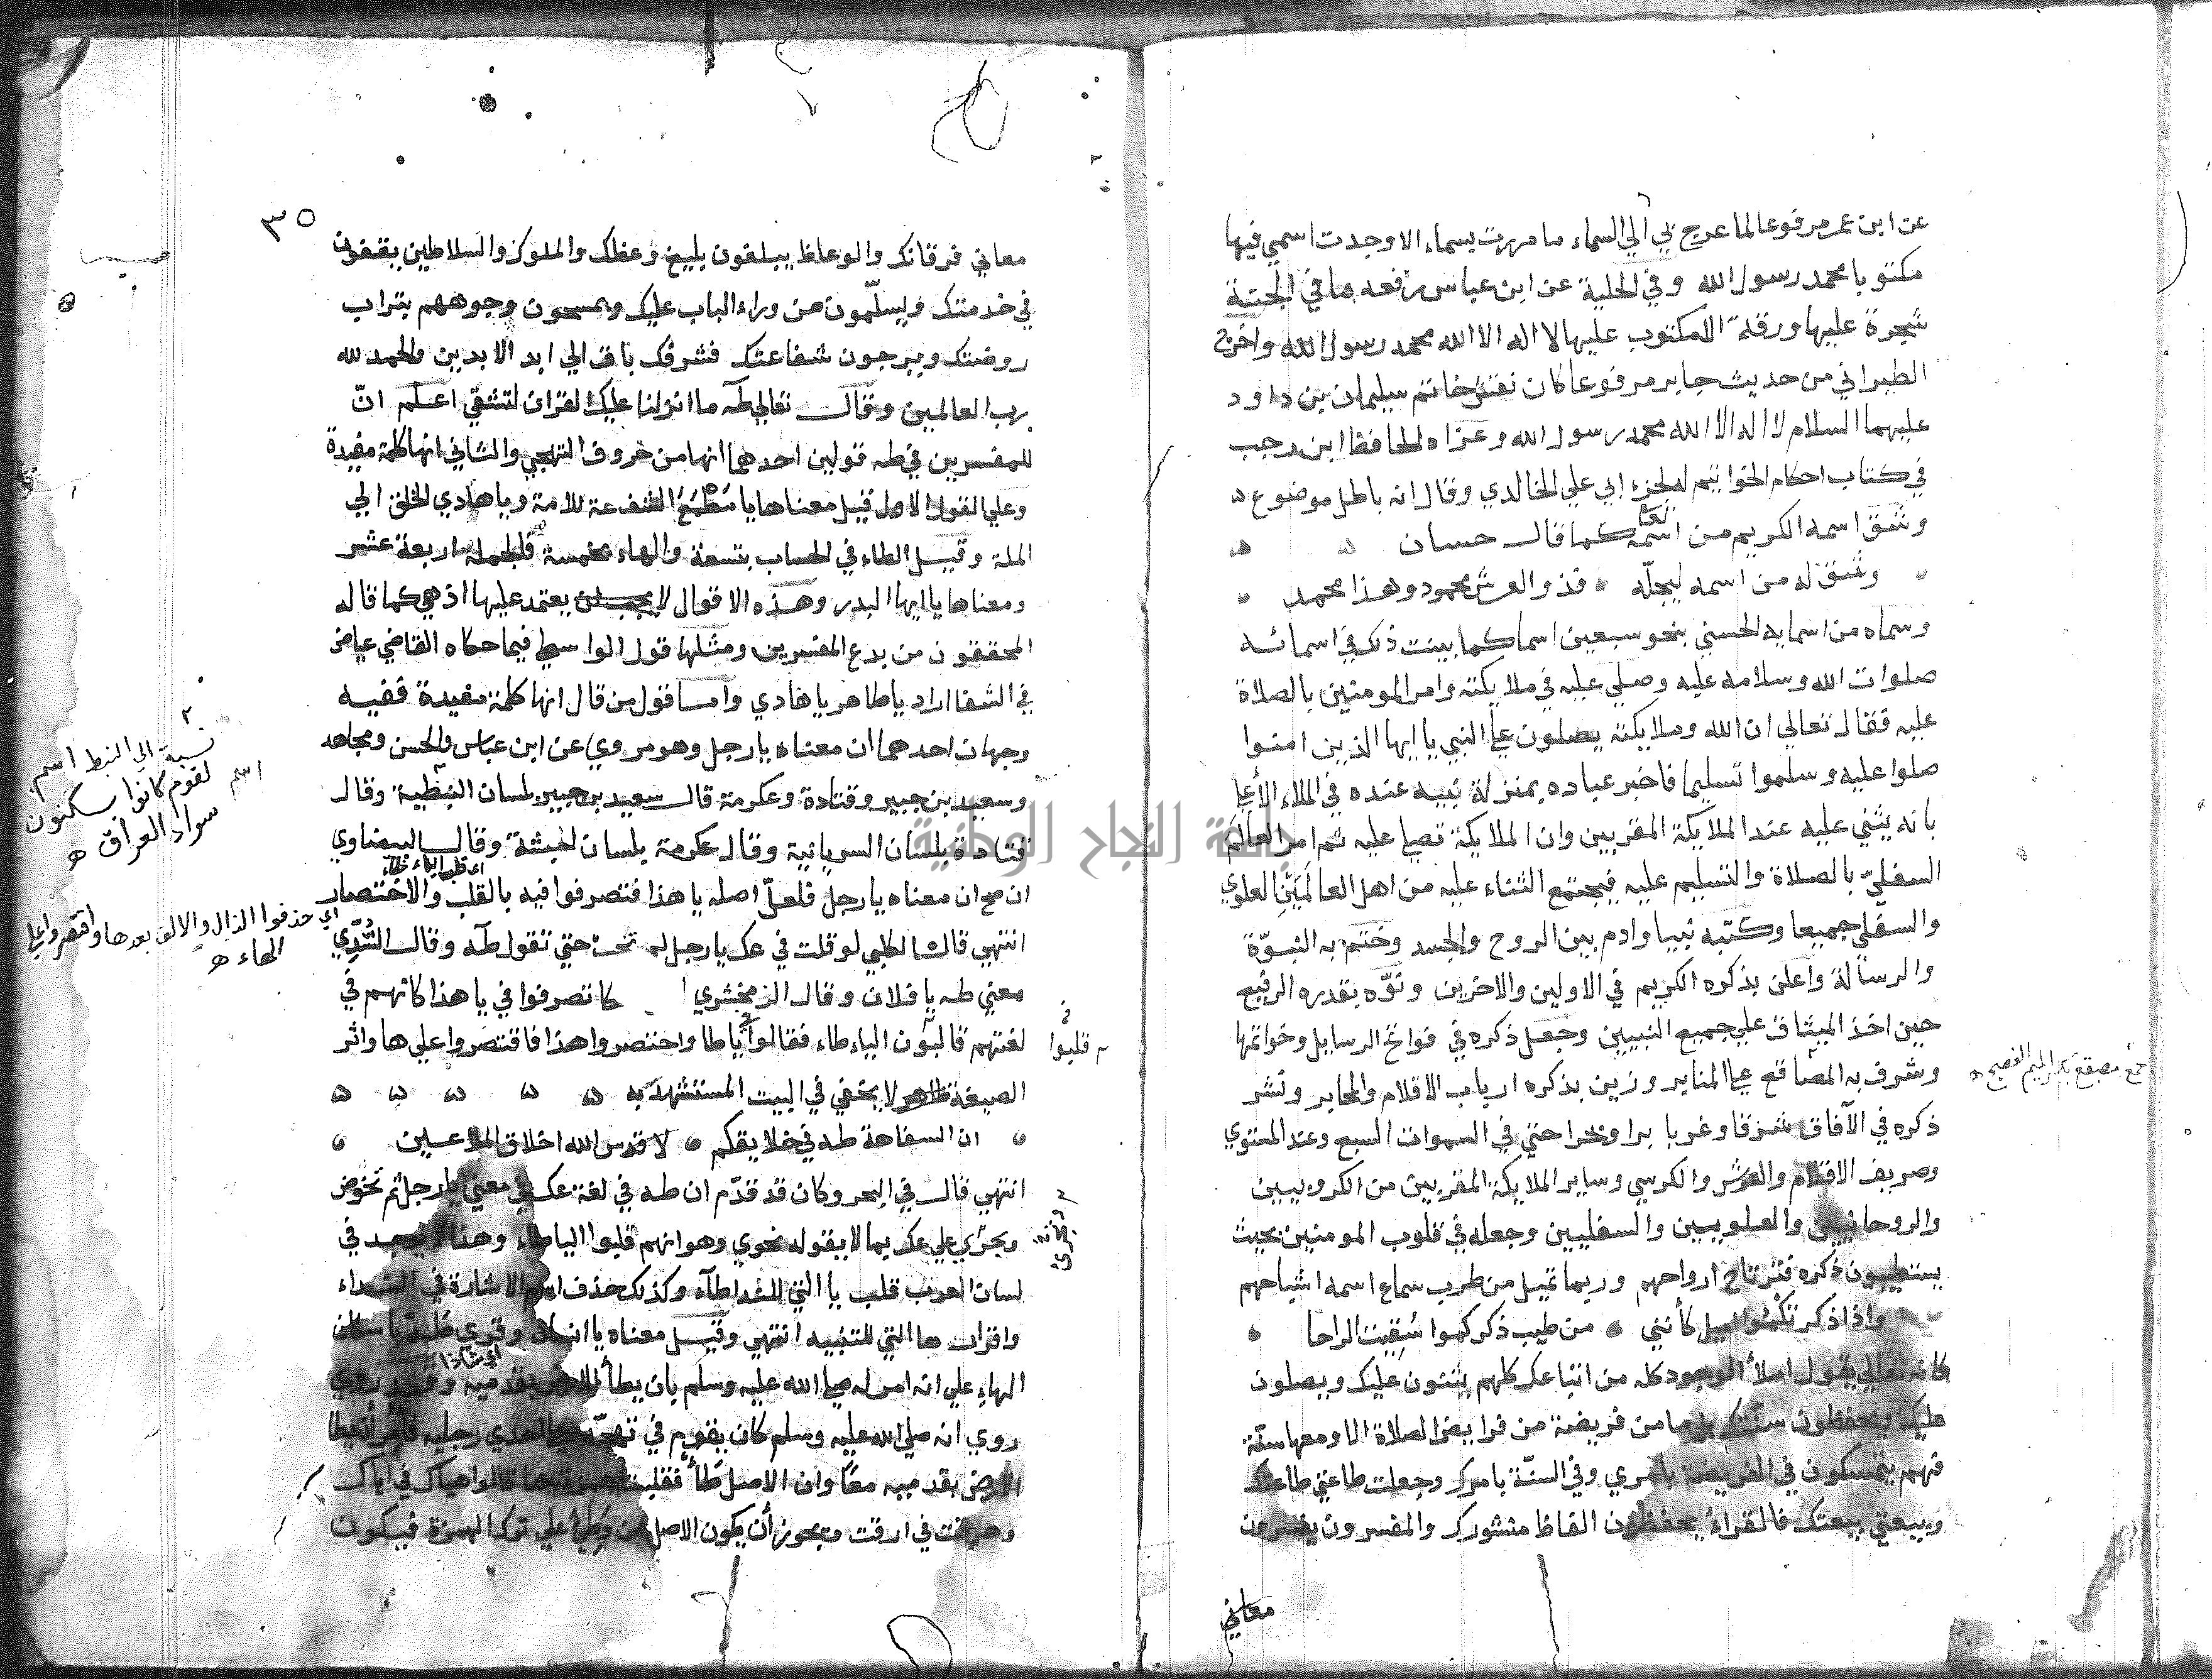 عن ابن عمر مرفوعا لما عرج بي الي السماء ما مررت بسماء الا وجدت اسمي فيها
مكتوبا محمد رسول الله وفي الحلية عن ابن عباس رفعه ما في الجنة
شجرة عليها ورقة الا مكتوب عليها لا اله الا الله محمد رسول الله واخرج
الطبراني من حديث جابر مرفوعا كان نقش خاتم سليمان بن داود
عليهما السلام لا اله الا الله محمد رسول الله وعزاه الحافظ ابن رجب
في كتاب احكام الخواتيم له لجزء ابي علي الخالدي وقال انه باطل موضوع
وشق اسمه الكريم من اسمه تعالى كما قال حسان
وشق له من اسمه ليجلّه فذو العرش محمود وهذا محمد
وسماه من اسمايه الحسني بنحو سبعين اسما كما بينت ذلك في اسمائه
صلوات الله وسلامه عليه وصلي عليه في ملايكته وامر المومنين بالصلاة
عليه فقال تعالي ان الله وملايكته يصلون علي النبي يا ايها الذين امنوا
صلوا عليه وسلموا تسليما فاخبر عباده بمنزلة نبيه عنده في الملاء الأعلي
بانه يثني عليه عند الملايكة المقربين وان الملايكة تصلي عليه ثم امر العالم
السفليّ بالصلاة والتسليم عليه فيجتمع الثناء عليه من اهل العالمَين العلوي
والسفلي جميعا وكتبه نبيا وادم بين الروح والجسد وختم به النبوّة
والرسالة واعلن بذكره الكريم في الاولين والاخرين ونوّه بقدره الرفيع
حين اخذ الميثاق علي جميع النبيين وجعل ذكره في فواتح الرسايل وخواتمها
وشرف به المصاقع علي المنابر وزين بذكره ارباب الاقلام والمحابر ونشر
جمع مصقع بكسر الميم الفصيح
ذكره في الآفاق شرقا وغربا برا وبحرا حتي في السموات السبع وعند المستوي
وصريف الاقلام والعرش والكرسي وساير الملايكة المقربين من الكروبيين
والروحانيين والعلويين والسفليين وجعله في قلوب المومنين بحيث
يستطيبون ذكره فترتاح ارواحهم وربما تميل من طرب سماع اسمه اشباحهم
واذا ذكرتكموا اميل كأنني من طيب ذكركموا سُقِيت الراحا
كانه تعالي يقول املأ الوجود كله من اتباعك كلهم يثنون عليك ويصلون
عليك ويحفظون سنّتك بل ما من فريضة من فرايض الصلاة الا ومعها سنّة
فهم يتمسكون في الفريضة بامري وفي السنّة بامرك وجعلت طاعتي طاعتك
وبيعتي بيعتك فالقراء يحفظون الفاظ منشورك والمفسرون يفسرون
معاني
٣٥
معاني فرقانك والوعاظ يبلغون بليغ وعظك والملوك والسلاطين يقفون
في خدمتك ويسلّمون من وراء الباب عليك ويمسحون وجوههم بتراب
روضتك ويرجون شفاعتك فشرفك باق الي ابد الابدين والحمد لله
رب العالمين وقال تعالي طه ما انزلنا عليك القران لتشقي اعلم انّ
للمفسرين في طه قولين احدهما انها من حروف التهجي والثاني انها كلمة مفيدة
وعلي القول الاول قيل معناها يا مُطْمِعَ الشفاعة للامة ويا هادي الخلق الي
الملة وقيل الطاء في الحساب بتسعة والهاء بخمسة فالجملة اربعة عشر
ومعناها يا ايها البدر وهذه الاقوال لا يجب ان يعتمد عليها اذ هي كما قاله
المحققون من بدع المفسرين ومثلها قول الواسطي فيما حكاه القاضي عياض
في الشفا اراد يا طاهر يا هادي واما قول من قال انها كلمة مفيدة ففيه
وجهان احدهما ان معناه يا رجل وهو مروي عن ابن عباس والحسن ومجاهد
وسعيد بن جبير وقتادة وعكرمة قال سعيد بن جبير بلسان النبطية وقال
نسبة الي النبط اسم
لقوم كانوا يسكنون
سواد العراق
قتادة بلسان السريانية وقال عكرمة بلسان الحبشة وقال البيضاوي
اي قلبوا الياء طاء
ان صح ان معناه يا رجل فلعلّ اصله يا هذا فتصرفوا فيه بالقلب والاختصار
اي حذفوا الذال والالف بعدها واقتصروا علي
الهاء
انتهي قال الكلبي لو قلت في عك يا رجل لم تجب حتي تقول طه وقال السُّدّي
معني طه يا فلان وقال الزمخشري كانهم في
لغتهم قالبون الياء طاء فقالوا في يا طا واختصروا هذا فاقتصروا علي ها واثر
قلبوا
الصيغة ظاهر لا يخفي في البيت المستشهد به
ان السفاهة طه في خلايقكم لا قدس الله اخلاق الملاعين
انتهي قال في البحر وكان قد قدّم ان طه في لغة عك في معني يا رجل ثم تخرّص
وتجرّي علي عك بما لا يقوله نحوي وهو انهم قلبوا اليا طاء وهذا لا يوجد في
لسان العرب قلب يا التي للنداء طاء وكذلك حذف اسم الاشارة في النداء
واقران ها التي للتنبيه انتهي وقيل معناه يا انسان وقري طَهْ باسكان
اي شاذا
الهاء علي انه امر له صلي الله عليه وسلم بان يطأ الارض بقدميه وقد روي
روي انه صلي الله عليه وسلم كان يقوم في تهجّده علي احدي رجليه فأمر أن يطا
الارض بقدميه معًا وان الاصل طأ فقلبت همزته ها قالوا هياك في اياك
وهرقت في ارقت ويجوز أن يكون الاصل من وطئ علي ترك الهمزة فيكون
جامعة النجاح الوطنية